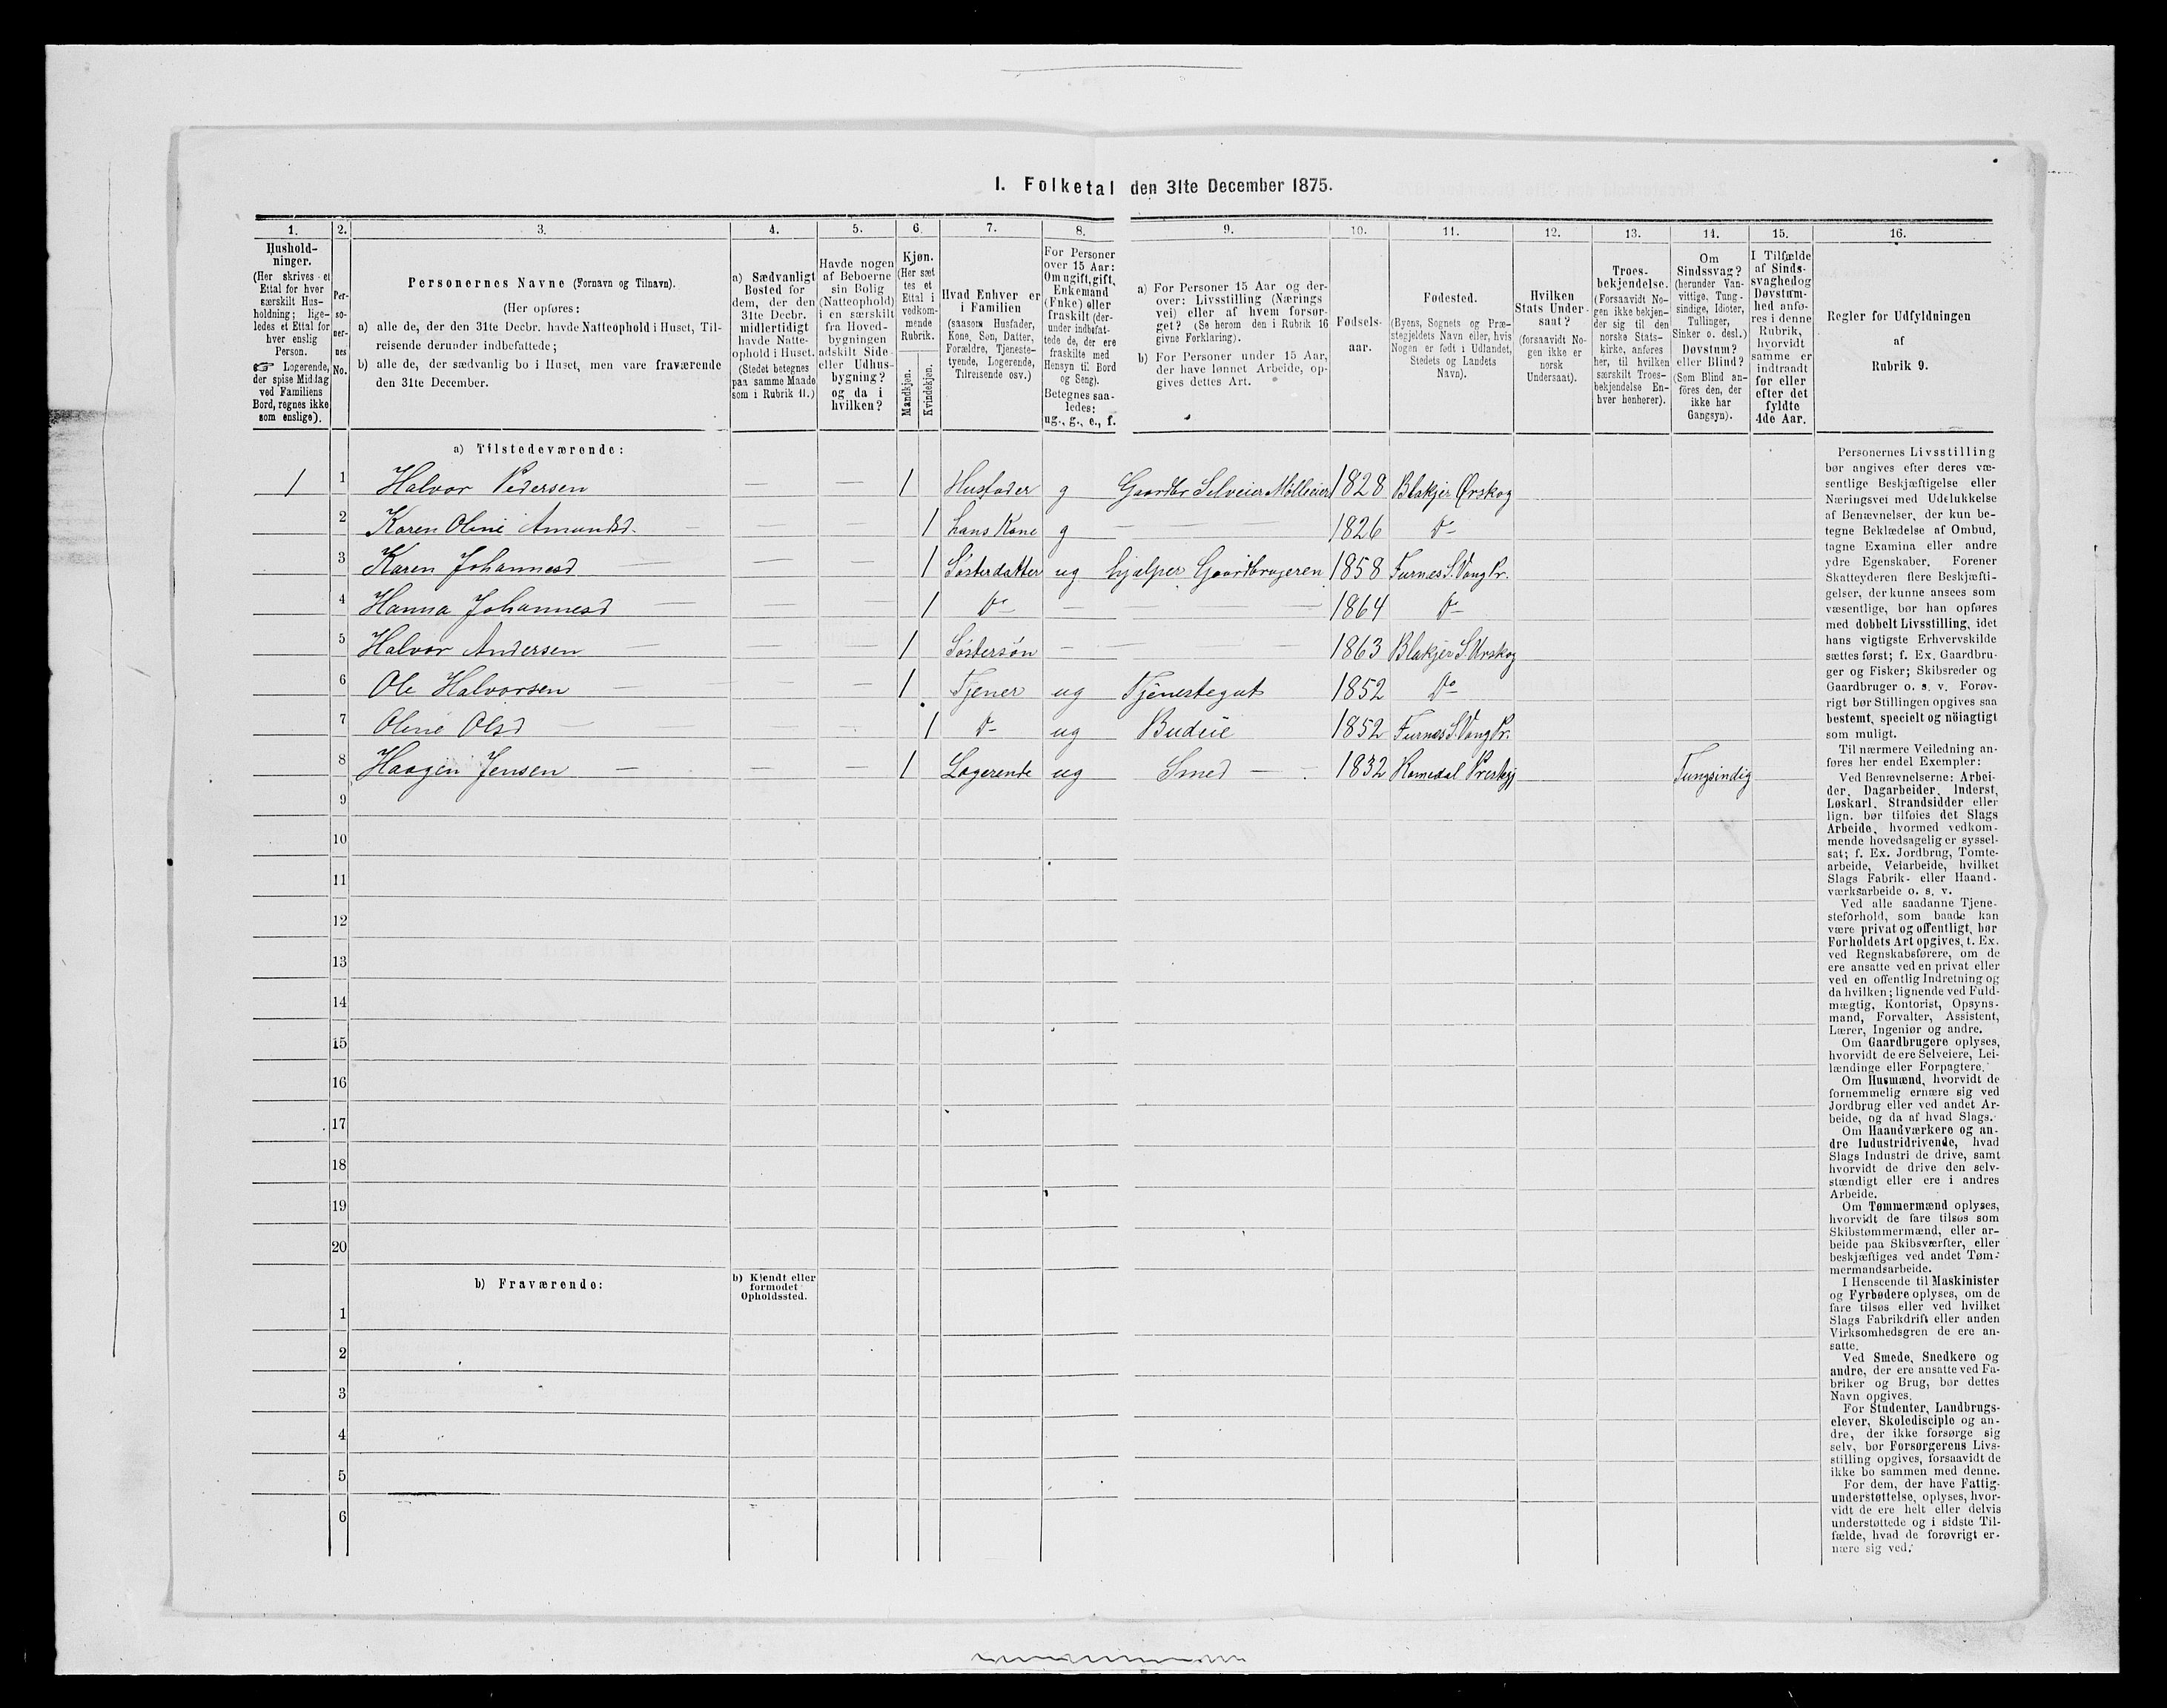 I. Folketal den 31te December 1875.
1. 2. 3. 4. 5. 6. 7. 8. 9. 10. 11. 12. 13. 14. 15. 16.
Hushold-
ninger.
(Her skrives et
Ettal for hver
særskilt Hus-
holdning; lige-
ledes et Ettal for
hver enslig
Person.
☞ Logerende,
der spise Middag
ved Familiens
Bord, regnes ikke
som enslige).
Per-
so-
ner-
nes
No.
Personernes Navne (Fornavn og Tilnavn).
(Her opføres:
a) alle de, der den 31te Decbr. havde Natteophold i Huset, Til-
reisende derunder indbefattede;
b) alle de, der sædvanlig bo i Huset, men vare fraværende
den 31te December.
a) Sædvanligt
Bosted for
dem, der den
31te Decbr.
midlertidigt
havde Natte-
ophold i Huset.
(Stedet betegnes
paa samme Maade
som i Rubrik 11.)
Havde nogen
af Beboerne
sin Bolig
(Natteophold)
i en særskilt
fra Hoved-
bygningen
adskilt Side-
eller Udhus-
bygning?
og da i
hvilken?
Kjøn.
(Her sæt
tes et
Ettal i
vedkom-
mende
Rubrik.
Mandkjøn.
Kvindekjøn.
Hvad Enhver er
i Familien
(saasom Husfader,
Kone, Søn, Datter,
Forældre, Tjeneste-
tyende, Logerende,
Tilreisende osv.)
For Personer
over 15 Aar:
Om ugift, gift,
Enkemand
(Enke) eller
fraskilt (der-
under indbefat-
tede de, der ere
fraskilte med
Hensyn til Bord
og Seng).
Betegnes saa-
ledes:
ug., g., e., f.
a) For Personer 15 Aar og der-
over: Livsstilling (Nærings
vei) eller af hvem forsør-
get? (Se herom den i Rubrik 16
givne Forklaring).
b) For Personer under 15 Aar,
der have lønnet Arbeide, op-
gives dettes Art.
Fødsels-
aar.
Fødested.
(Byens, Sognets og Præ-
stegjeldets Navn eller, hvis
Nogen er født i Udlandet,
Stedets og Landets
Navn).
Hvilken
Stats Under-
saat?
(forsaavidt No-
gen ikke er
norsk
Undersaat).
Troes-
bekjendelse.
(Forsaavidt No-
gen ikke bekjen-
der sig til den
norske Stats-
kirke, anføres
her, til hvilken
særskilt Troes-
bekjendelse En-
hver henhører).
Om
Sindssvag?
(herunder Van-
vittige, Tung-
sindige, Idioter,
Tullinger,
Sinker o. desl.)
Døvstum?
eller Blind?
(Som Blind an-
føres den, der
ikke har
Gangsyn).
I Tilfælde
af Sinds-
svaghed og
Døvstum-
hed anfø-
res i denne
Rubrik,
hvorvidt
samme er
indtraadt
før eller
efter det
fyldte
4de Aar.
Regler for Udfyldningen
af
Rubrik 9.
a) Tilstedeværende:
1 1 Halvor Pedersen — — 1 Husfader g Gaardbr. Selveier Mølleeier 1828 Blakjer Ørskog
2 Karen Oline Amundsd. — — — 1 hans Kone g — — 1826 Do
3 Karen Johannesd — — — 1 Søsterdatter ug hjælper Gaardbrugeren 1858 Furnæs S. Vang Pr.
4 Hanna Johannesd — — — 1 Do — — — 1864 Do
5 Halvor Andersen — — — 1 Søstersøn — — — 1863 Blakjer S. Urskog
6 Ole Halvorsen — — — 1 Tjener ug Tjenestegut 1852 Do
7 Oline Olsd — — — 1 Do ug Budeie 1852 Furnæs S. Vang Pr.
8 Haagen Jensen — — — 1 Logerende ug Smed — 1832 Romedal Prestgj Tungsindig
9
10
11
12
13
14
15
16
17
18
19
20
b) Fraværende:
b) Kjendt eller
formodet
Opholdssted.
1
2
3
4
5
6
Personernes Livsstilling
bør angives efter deres væ-
sentlige Beskjæftigelse eller
Næringsvei med Udelukkelse
af Benævnelser, der kun be-
tegne Beklædelse af Ombud,
tagne Examina eller andre
ydre Egenskaber. Forener
Skatteyderen flere Beskjæfti-
gelser, der kunne ansees som
væsentlige, bør han opføres
med dobbelt Livsstilling, idet
hans vigtigste Erhvervskilde
sættes først; f. Ex. Gaardbru-
ger og Fisker; Skibsreder og
Gaardbruger o. s. v. Forøv-
rigt bør Stillingen opgives saa
bestemt, specielt og nöiagtigt
som muligt.
Til nærmere Veiledning an-
føres her endel Exempler:
Ved Benævnelserne: Arbei-
der, Dagarbeider, Inderst,
Løskarl, Strandsidder eller
lign. bør tilføies det Slags
Arbeide, hvormed vedkom-
mende hovedsagelig er syssel-
sat; f. Ex. Jordbrug, Tomte-
arbeide, Veiarbeide, hvilket
Slags Fabrik- eller Haand-
værksarbeide o. s. v.
Ved alle saadanne Tjene-
steforhold, som baade kan
være privat og offentligt, bør
Forholdets Art opgives, t. Ex.
ved Regnskabsførere, om de
ere ansatte ved en privat eller
ved en offentlig Indretning og
da hvilken; lignende ved Fuld-
mægtig, Kontorist, Opsyns-
mand, Forvalter, Assistent,
Lærer, Ingeniør og andre.
Om Gaardbrugere oplyses,
hvorvidt de ere Selveiere, Lei-
lændinge eller Forpagtere.
Om Husmænd, hvorvidt de
fornemmelig ernære sig ved
Jordbrug eller ved andet Ar-
beide, og da af hvad Slags.
Om Haandværkere og an-
dre Industridrivende, hvad
Slags Industri de drive, samt
hvorvidt de drive den selv-
stændigt eller ere i andres
Arbeide.
Om Tømmermænd oplyses,
hvorvidt de fare tilsøs som
Skibstømmermænd, eller ar-
beide paa Skibsværfter, eller
beskjæftiges ved andet Tøm-
mermandsarbeide.
I Henseende til Maskinister
og Fyrbødere oplyses, om de
fare tilsøs eller ved hvilket
Slags Fabrikdrift eller anden
Virksomhedsgren de ere an-
satte.
Ved Smede, Snedkere og
andre, der ere ansatte ved Fa-
briker og Brug, bør dettes
Navn opgives.
For Studenter, Landbrugs-
elever, Skoledisciple og an-
dre, der ikke forsørge sig
selv, bør Forsørgerens Livs-
stilling opgives, forsaavidt de
ikke bo sammen med denne.
For dem, der have Fattig-
understøttelse, oplyses, hvor-
vidt de ere helt eller delvis
understøttede og i sidste Til-
fælde, hvad de forøvrigt er-
nære sig ved.